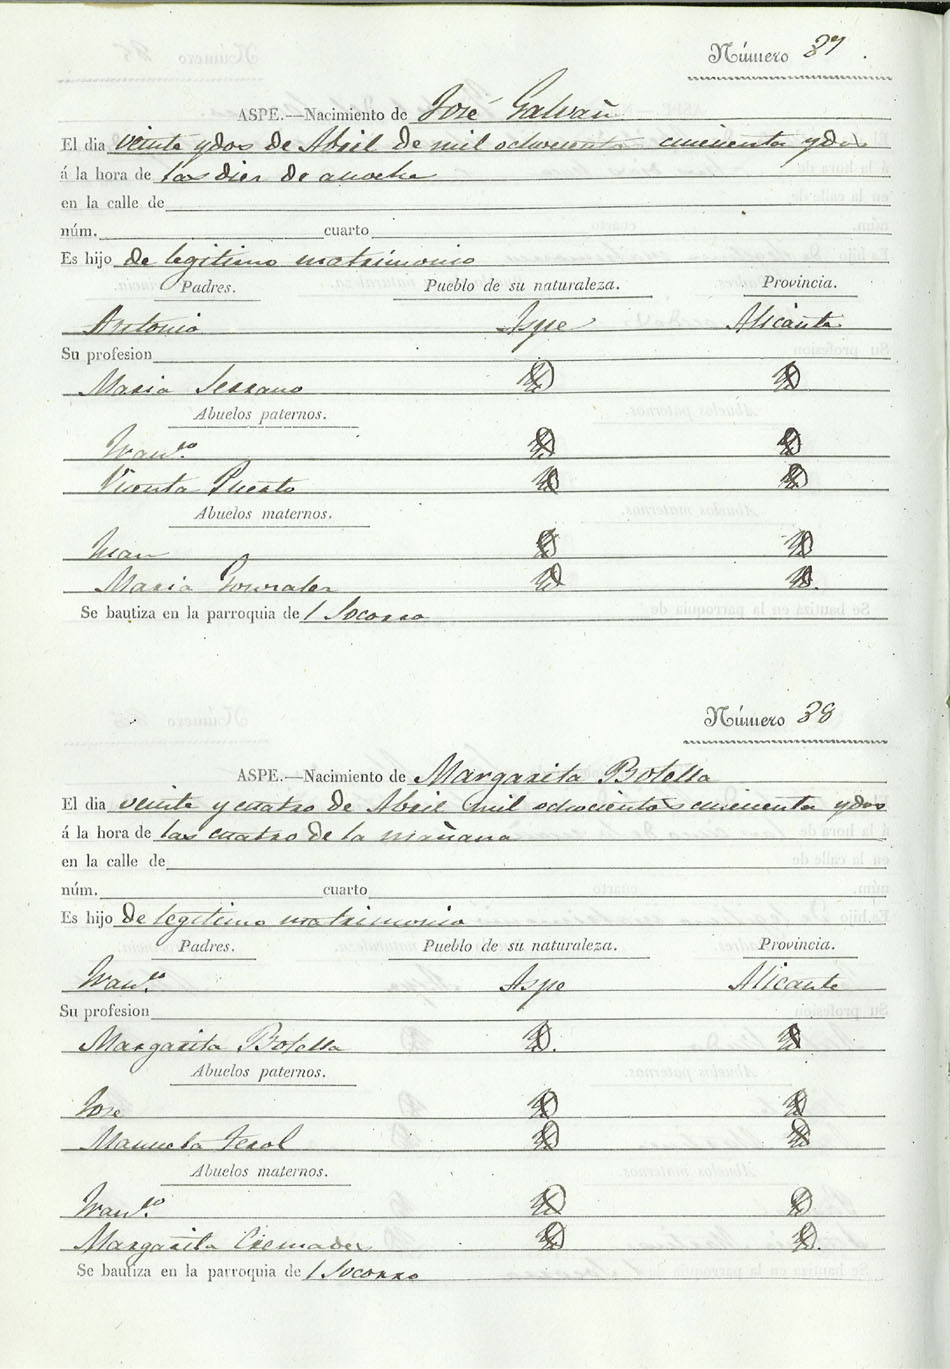 Número 37.
ASPE.—Nacimiento de José Galvañ
El dia veinte y dos de Abril de mil ochocientos cincuenta y dos
á la hora de las diez de anoche
en la calle de
núm. cuarto
Es hijo de legitimo matrimonio
Padres. Pueblo de su naturaleza. Provincia.
Antonio Aspe Alicante
Su profesion
Maria Serrano
Abuelos paternos.
Franco.
Vicenta Puerto
Abuelos maternos.
Juan
Maria Gonzalez
Se bautiza en la parroquia de l Socorro
Número 38
ASPE.—Nacimiento de Margarita Botella
El dia veinte y cuatro de Abril mil ochocientos cincuenta y dos
á la hora de las cuatro de la mañana
en la calle de
núm. cuarto
Es hijo de legitimo matrimonio
Padres. Pueblo de su naturaleza. Provincia.
Franco. Aspe Alicante
Su profesion
Margarita Botella
Abuelos paternos.
Jose
Manuela Terol
Abuelos maternos.
Franco.
Margarita Cremades
Se bautiza en la parroquia de l Socorro